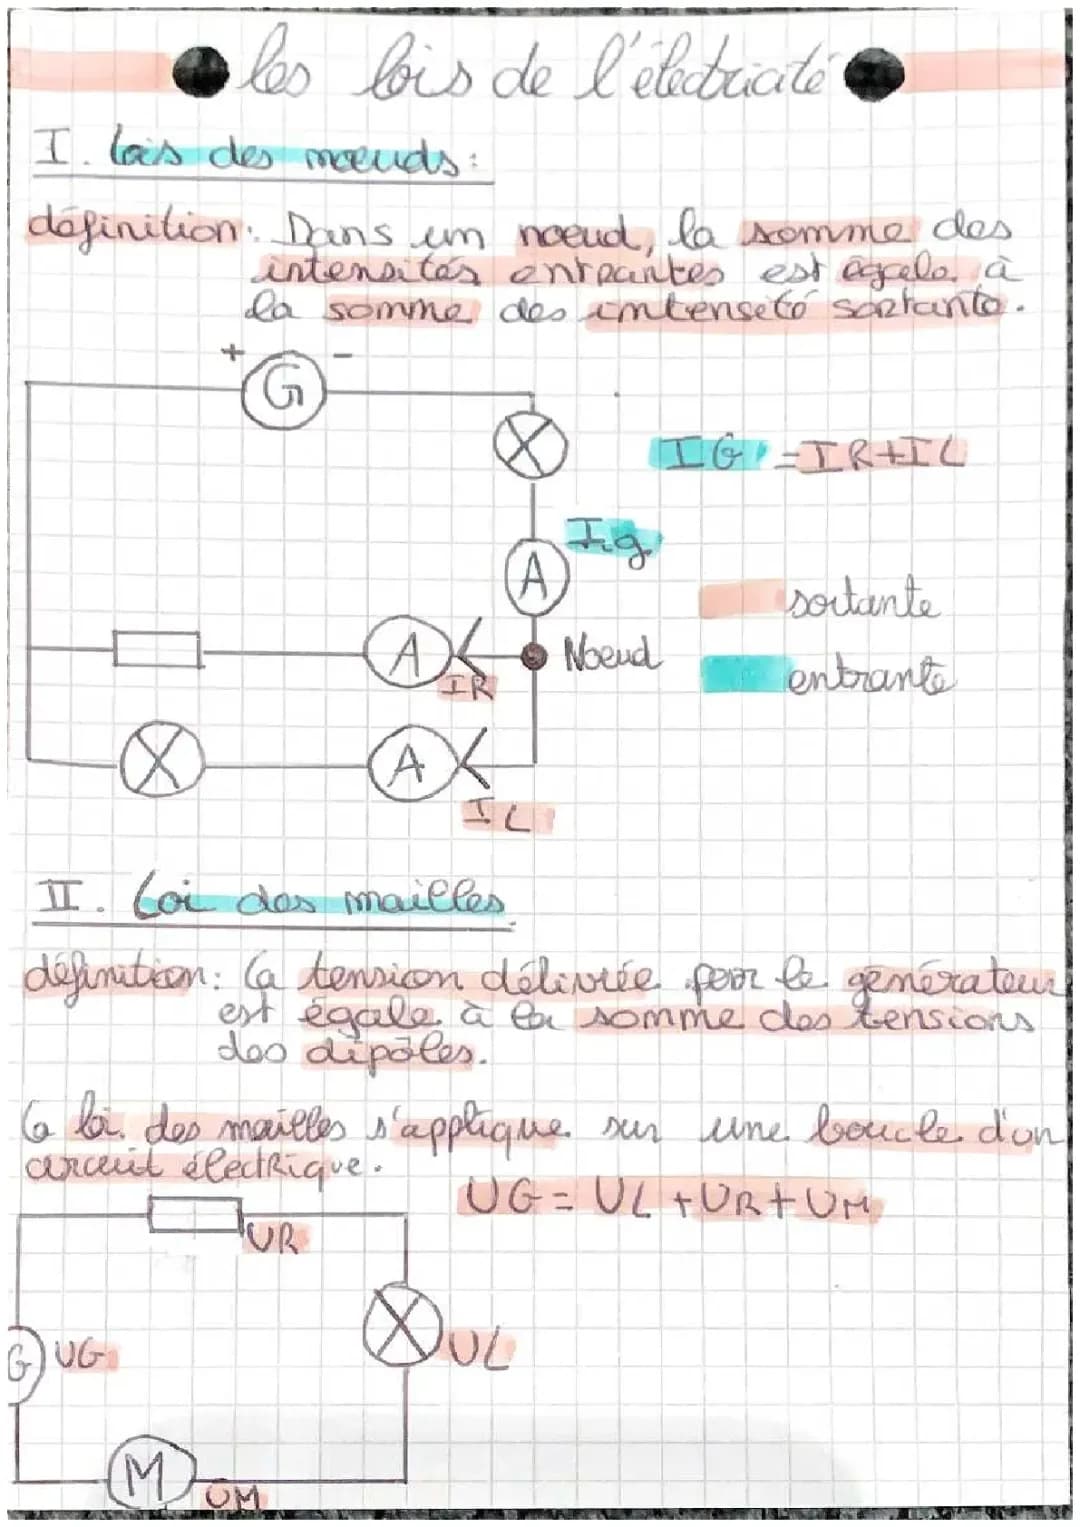 les lois de l'électricité
I. Lois des nœuds:
définition: Dans un noeud, la somme des
intensités entrantes est égale à
la somme des intensité sortante.
+ -
G
IG = IR+IL
I.g
A
sortante
A Noeud
IR
entrante
A
IL
II. Loi des mailles
définition: La tension délivrée par le générateur
est égale à la somme des tensions
des dipôles.
La loi des mailles s'applique sur une boucle d'un
circuit électrique.
UG = UL + UR + UM
UR
G UG
UL
M
UM